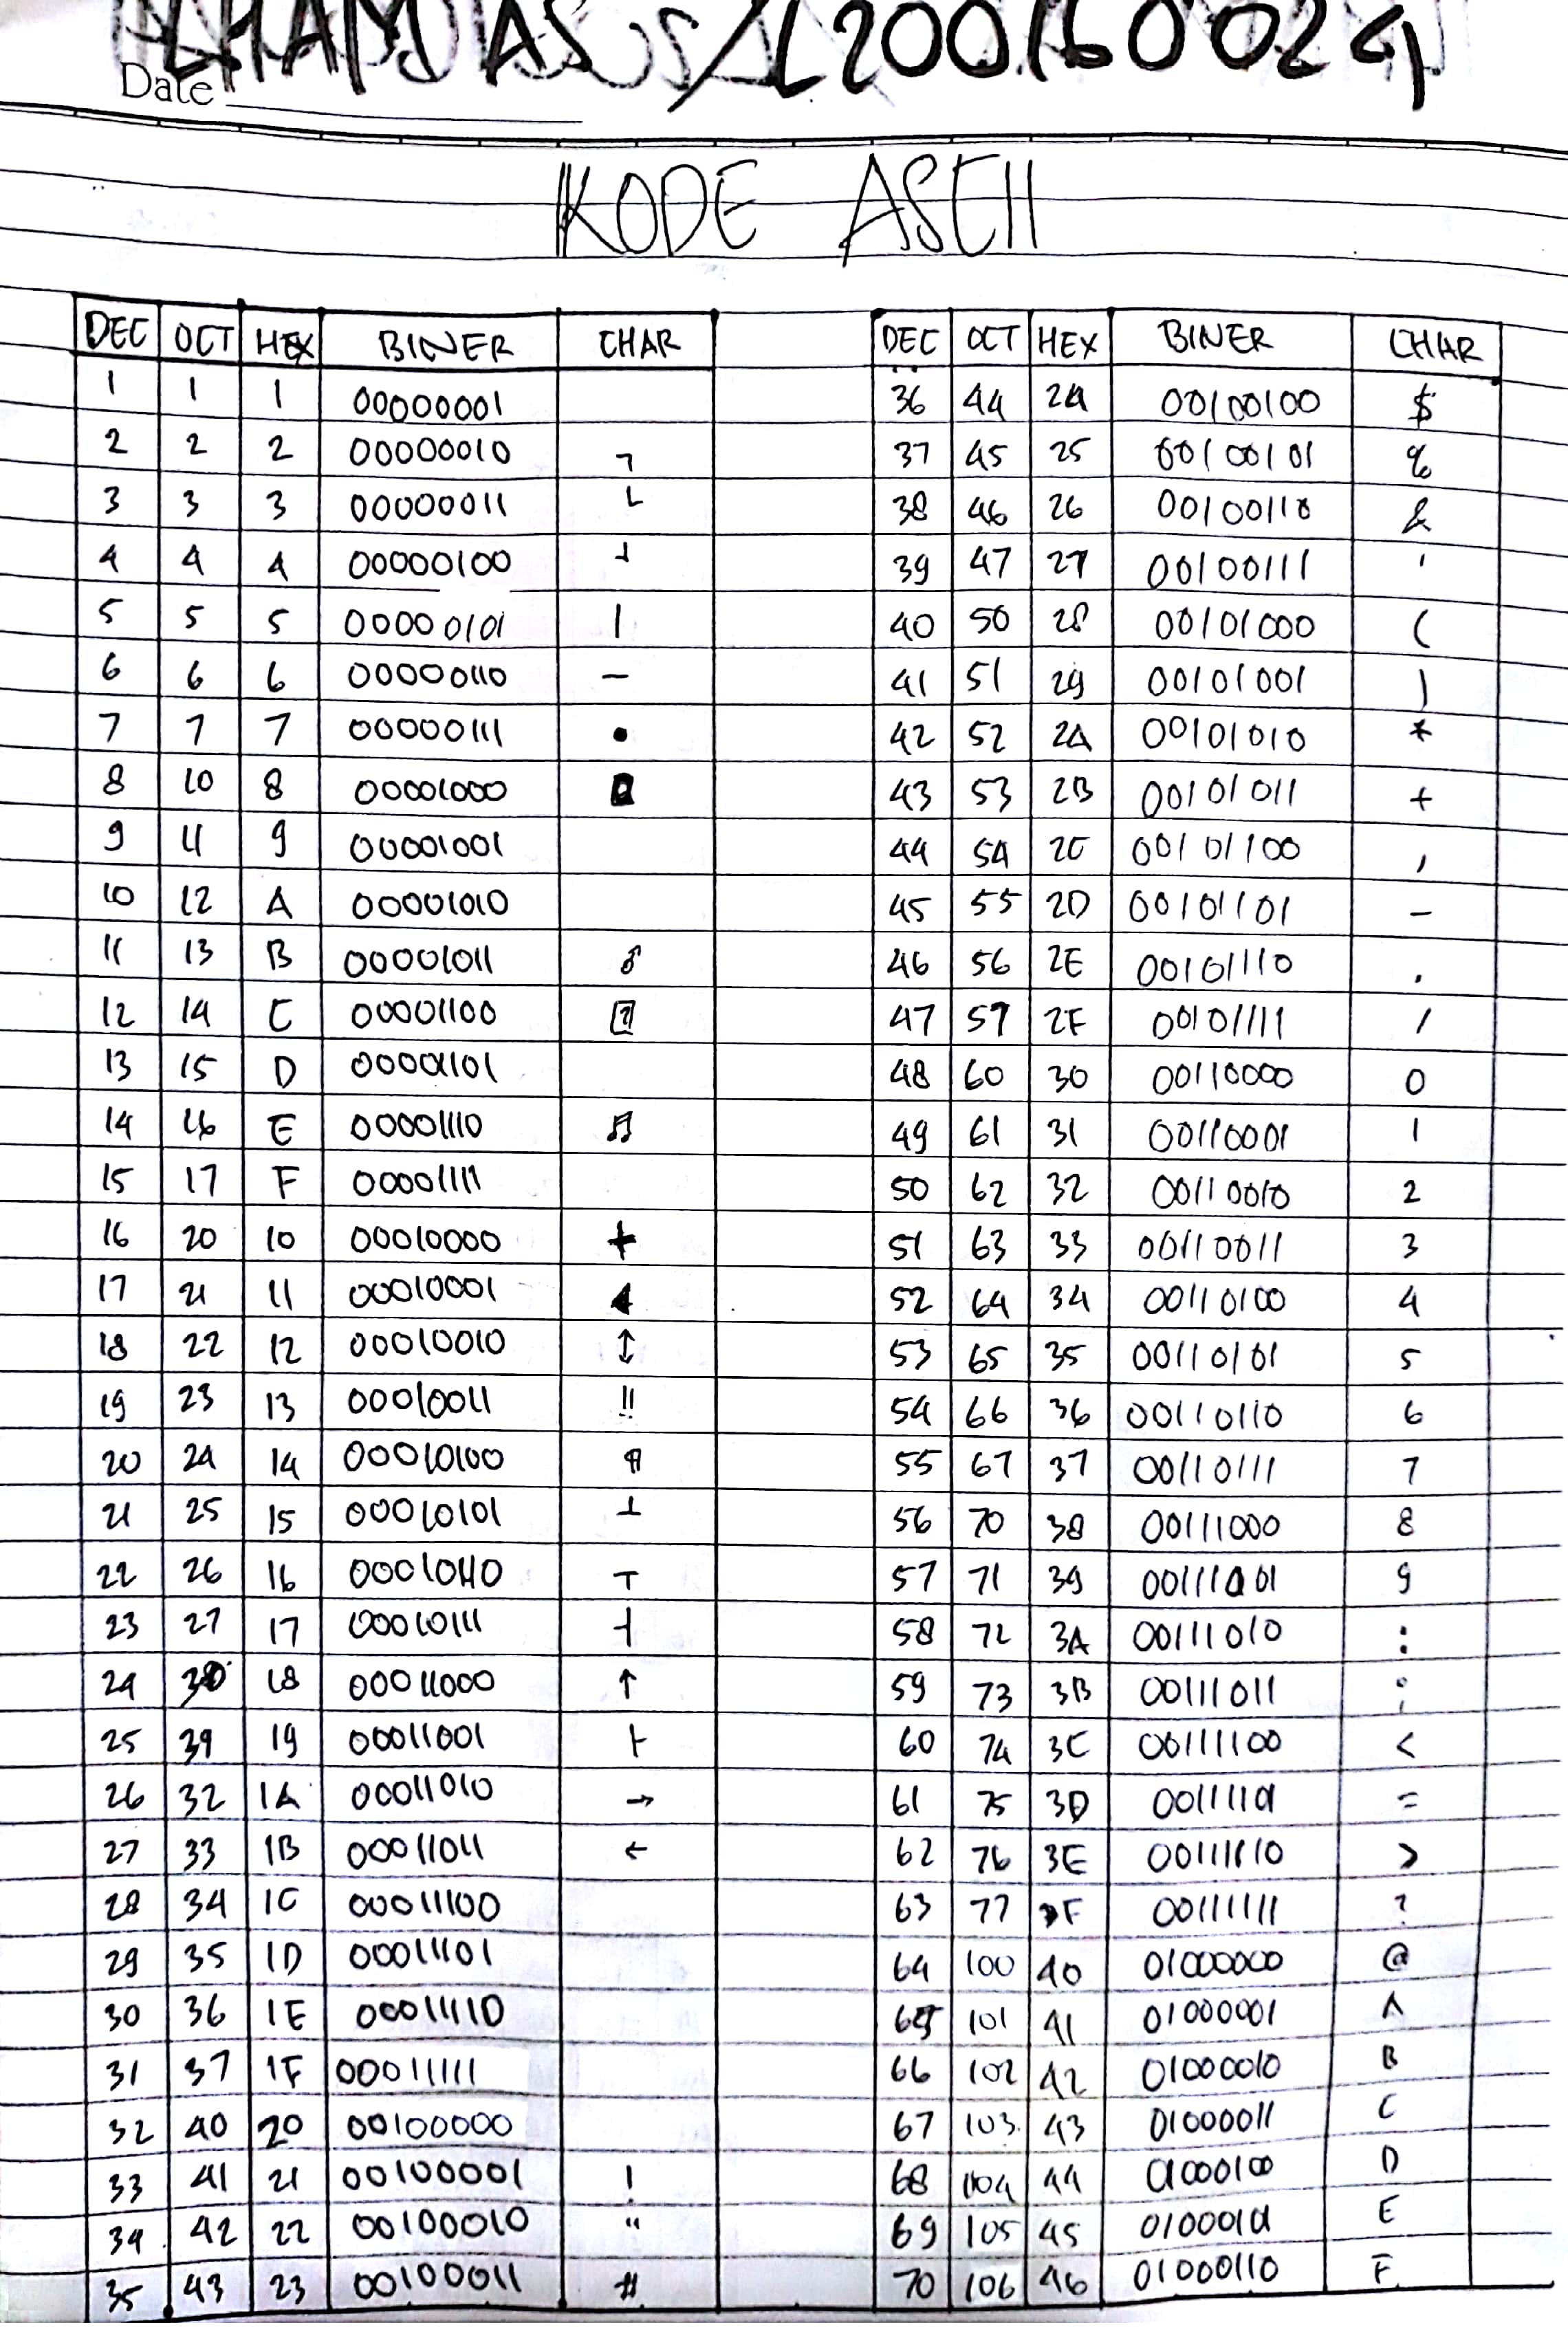 /L200160024
Date
KODE ASCII
DEC OCT HEX BINER CHAR
1 1 1 00000001
2 2 2 00000010 ┐
3 3 3 00000011 └
4 4 4 00000100 ┘
5 5 5 00000101 |
6 6 6 00000110 –
7 7 7 00000111 •
8 10 8 00001000 ◘
9 11 9 00001001
10 12 A 00001010
11 13 B 00001011 ♂
12 14 C 00001100
13 15 D 00001101
14 16 E 00001110 ♫
15 17 F 00001111
16 20 10 00010000 +
17 21 11 00010001 ◄
18 22 12 00010010 ↕
19 23 13 00010011 !!
20 24 14 00010100 ¶
21 25 15 00010101 ┴
22 26 16 00010110 ┬
23 27 17 00010111 ┤
24 30 18 00011000 ↑
25 39 19 00011001 ├
26 32 1A 00011010 →
27 33 1B 00011011 ←
28 34 1C 00011100
29 35 1D 00011101
30 36 1E 00011110
31 37 1F 00011111
32 40 20 00100000
33 41 21 00100001 !
34 42 22 00100010 "
35 43 23 00100011 #
DEC OCT HEX BINER CHAR
36 44 24 00100100 $
37 45 25 00100101 %
38 46 26 00100110 &
39 47 27 00100111 '
40 50 28 00101000 (
41 51 29 00101001 )
42 52 2A 00101010 *
43 53 2B 00101011 +
44 54 2C 00101100 ,
45 55 2D 00101101 -
46 56 2E 00101110 .
47 57 2F 00101111 /
48 60 30 00110000 0
49 61 31 00110001 1
50 62 32 00110010 2
51 63 33 00110011 3
52 64 34 00110100 4
53 65 35 00110101 5
54 66 36 00110110 6
55 67 37 00110111 7
56 70 38 00111000 8
57 71 39 00111001 9
58 72 3A 00111010 :
59 73 3B 00111011 ;
60 74 3C 00111100 <
61 75 3D 00111101 =
62 76 3E 00111110 >
63 77 3F 00111111 ?
64 100 40 01000000 @
65 101 41 01000001 A
66 102 42 01000010 B
67 103 43 01000011 C
68 104 44 01000100 D
69 105 45 01000101 E
70 106 46 01000110 F